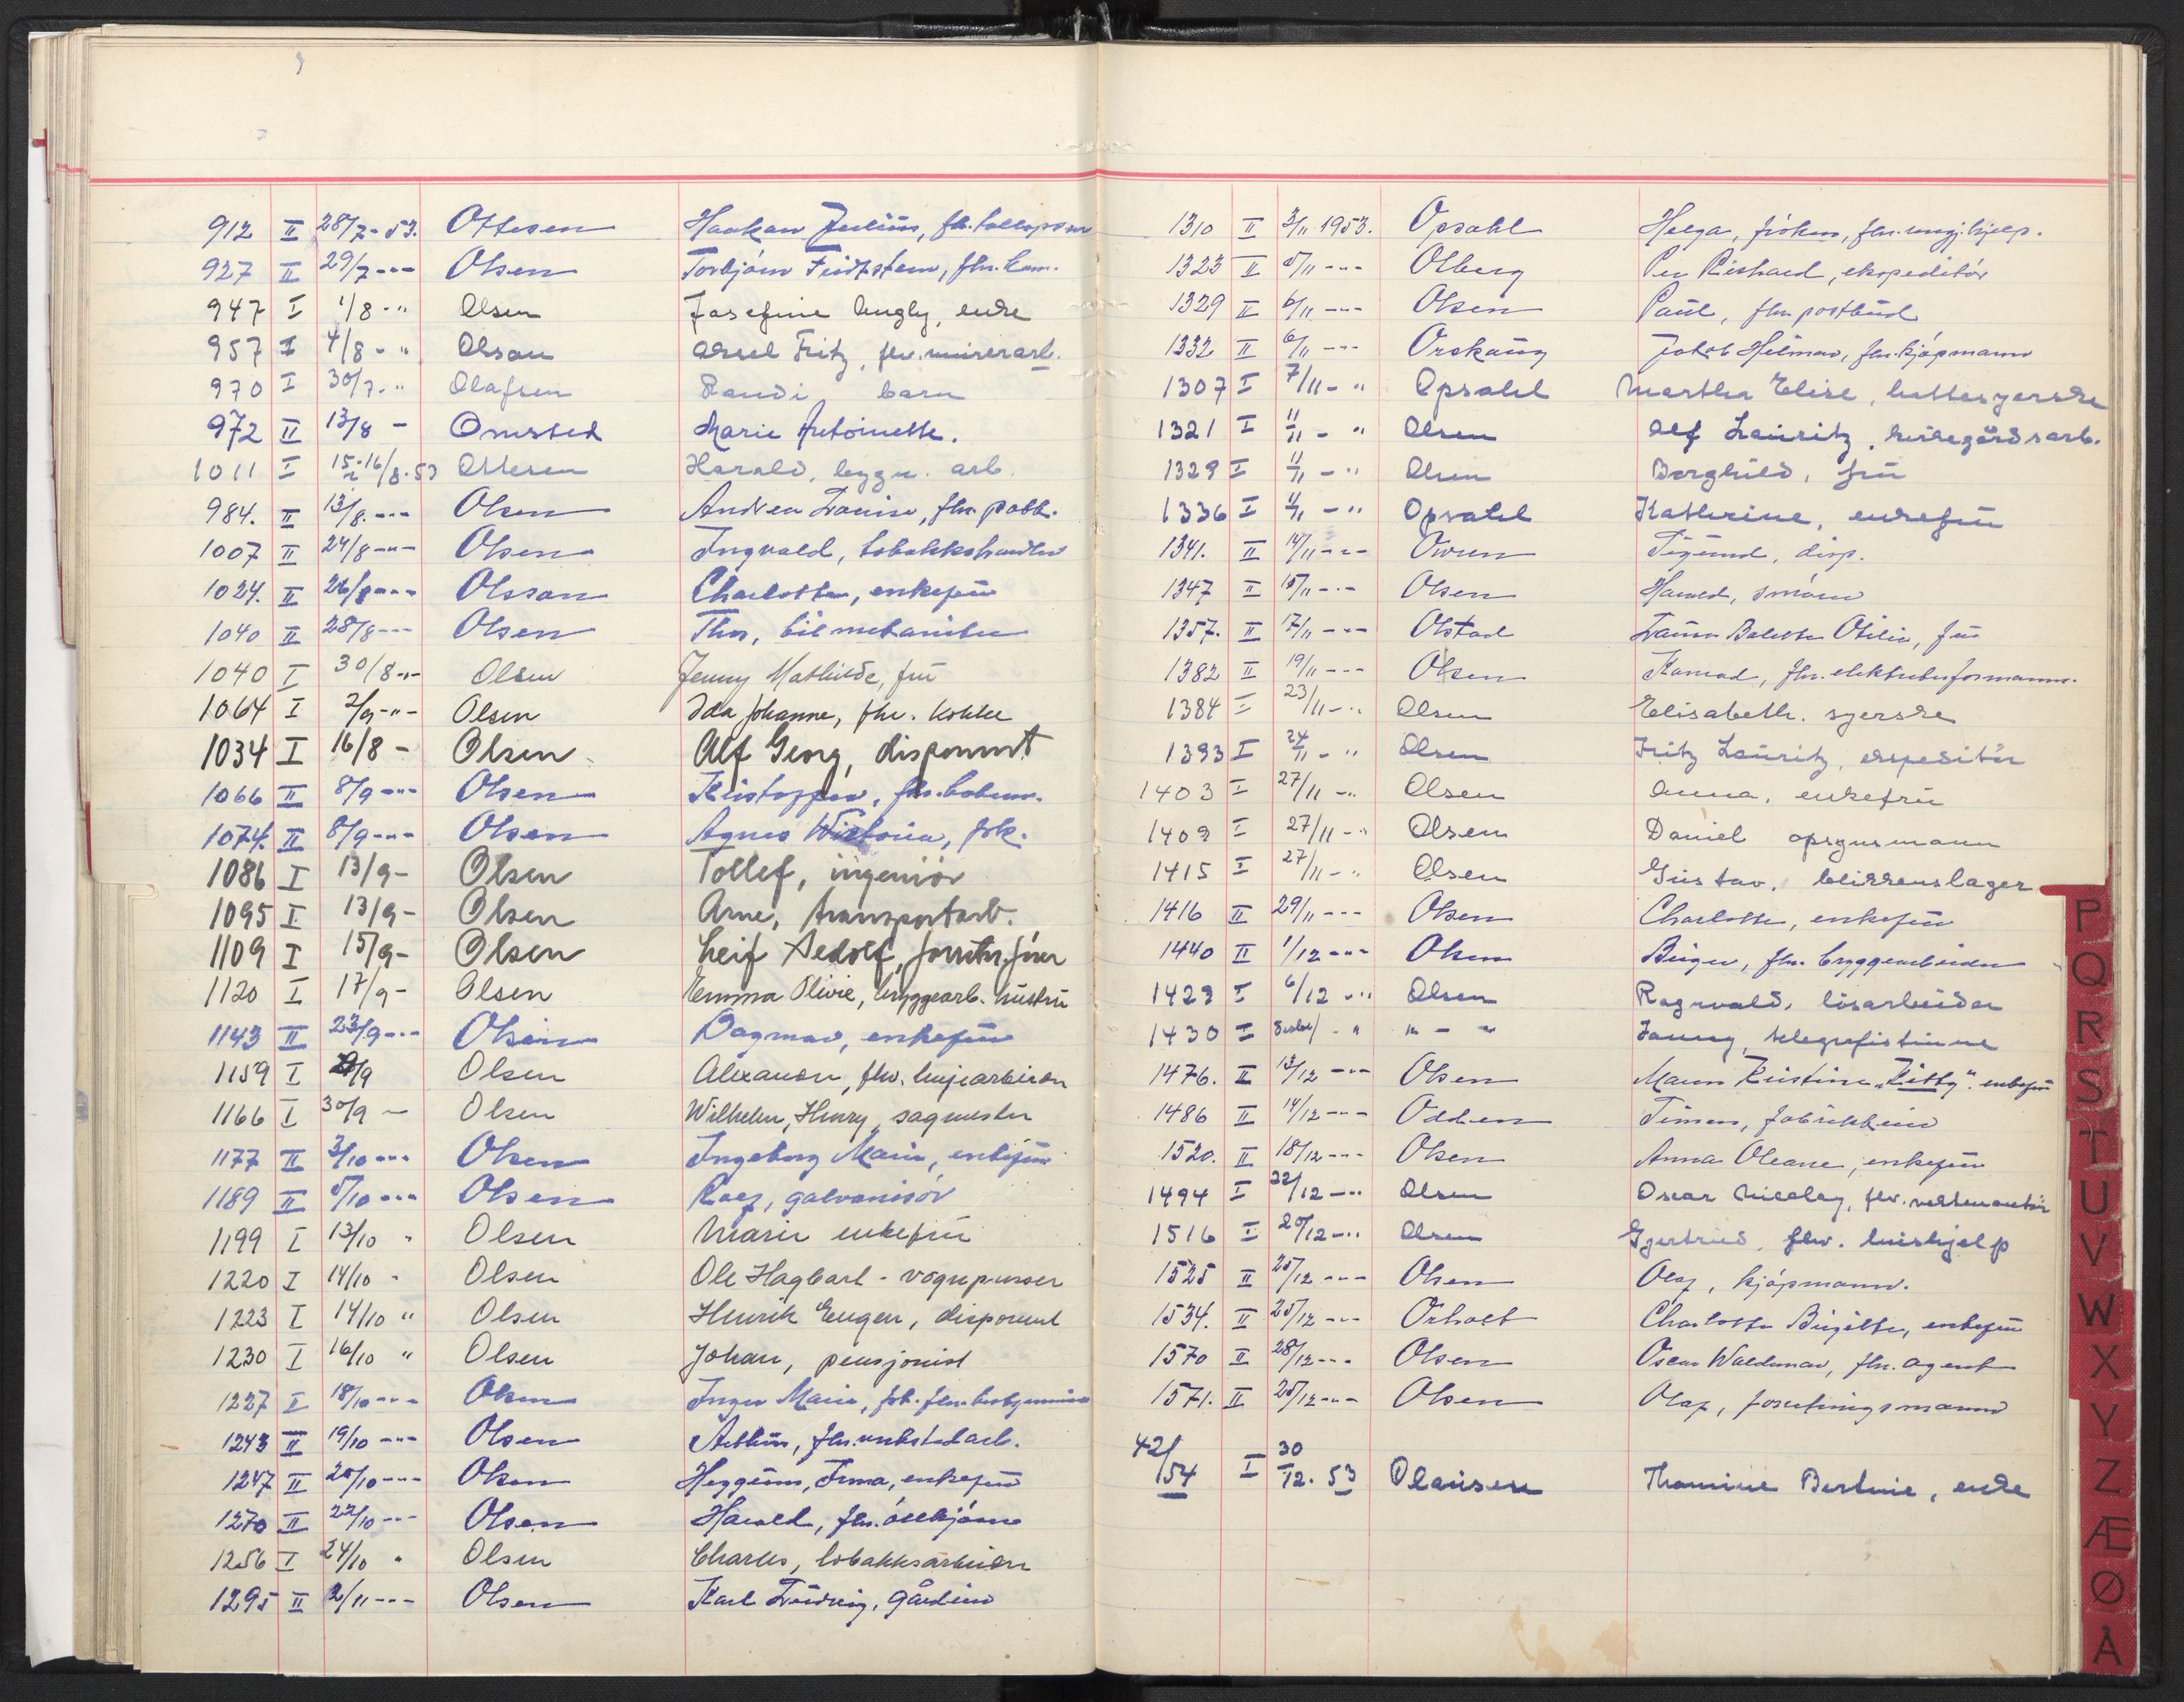 912 II 28/7-53. Ottesen Haakon Julius, fhv. tolloppsm
927 II 29/7 --- Olsen Torbjørn Fridtstein, fhv.
947 I 1/8 - " Olsen Josefine, enke
957 I 4/8 - " Olson Aksel Fritz, fhv. murerarb.
970 I 30/7. " Olafsen Randi barn
972 II 13/8 - Omsted Marie Antoinette.
1011 I 15-16/8.53 Ottesen Harald, bygn. arb.
984. II 13/8. --- Olsen Andrea Louise, fhv.
1007 II 24/8 -"- Olsen Ingvald, tobakkshandler
1024. II 26/8 --- Olsson Charlotte, enkefrü
1040 II 28/8 --- Olsen Thor, bilmekaniker
1040 I 30/8 -"- Olsen Jenny Mathilde, frü
1064 I 2/9 -"- Olsen Ida Johanne, fhv. kokke
1034 I 16/8 - Olsen Alf Georg, disponent
1066 II 8/9 -"- Olsen Kristoffer, fhv.
1074. II 8/9 -"- Olsen Agnes Victoria, frk.
1086 I 13/9 - Olsen Tollef, ingeniör
1095 I 13/9 - Olsen Arne, transportarb.
1109 I 15/9 - Olsen Leif Aedolf,
1120 I 17/9 - Olsen Emma Olivie, bryggearb. hustru
1143 II 23/9 --- Olsen Dagmar, enkefrü
1159 I /9 Olsen Alexander, fhv. linjearbeider
1166 I 30/9 - Olsen Wilhelm, Henry, sagmester
1177 II 3/10 --- Olsen Ingeborg Marie, enkefrü
1189 II 5/10 --- Olsen Roef, galvanisör
1199 I 13/10 " Olsen Marie enkefrü
1220 I 14/10 " Olsen Ole Hagbart - vognpusser
1223 I 14/10 " Olsen Henrik Eugen, disponent
1230 I 16/10 " Olsen Johan, pensjonist
1227 I 18/10 --- Olsen Inger Marie, frk. fhv.
1243 II 19/10 -"- Olsen Arthur, fhv. verkstedarb.
1247 II 20/10 --- Olsen Heggum, Irma, enkefrü
1270 II 22/10 --- Olsen Harald, fhv. ölkjører
1256 I 24/10 " Olsen Charles, tobakksarbeider
1295 II 2/11 --- Olsen Karl Ludvig, gårdeier
1310 II 3/11 1953. Opsahl Helga, frøken, fhv. rengj. hjelp.
1323 II 5/11 -"- Olberg Per Richard, ekspeditør
1329 II 6/11 -"- Olsen Paul, fhv. postbud
1332 II 6/11 --- Orskaug Jakob Hilmar, fhv. kjøpmann
1307 I 7/11 - " Opsahl Martha Elise, hattesyerske
1321 I 11/11 - " Olsen Alf Lauritz, kirkegårdsarb.
1329 I 11/11 - " Olsen Borghild, frü
1336 I 11/11 - " Opsahl Kathrine, enkefrü
1341. II 14/11 --- Owren Sigurd, disp.
1347 II 15/11 -"- Olsen Harald,
1357. II 17/11 --- Olstad Laura Otilie, frü
1382 II 19/11 --- Olsen Konrad, fhv.
1384 I 23/11 - " Olsen Elisabeth. syerske
1393 I 24/11 - " Olsen Fritz Lauritz, ekspeditör
1403 I 27/11 - " Olsen Anna, enkefrü
1409 I 27/11 - " Olsen Daniel opsynsmann
1415 I 27/11 - " Olsen Gustav, blikkenslager
1416 II 29/11 --- Olsen Charlotte, enkefrü
1440 II 1/12 --- Olsen Birger, fhv. bryggearbeider
1429 I 6/12 - " Olsen Ragnvald, løsarbeider
1430 I - " " - " Jenny, telegrafistinne
1476. II 13/12 --- Olsen Maren Kristine "Kitty". enkefrü
1486 II 14/12 --- Odden Simen, fabrikkeier
1520. II 18/12 --- Olsen Anna Oleane, enkefrü
1494 I 22/12 - " Olsen Oscar Nicolay, fhv.
1516 I 20/12 - " Olsen Gjertrud, fhv. hushjelp
1525 II 25/12 --- Olsen Olaf, kjøpmann.
1534. II 25/12 --- Orholt Charlotte Birgitte, enkefrü
1570 II 28/12 --- Olsen Oscar Waldemar, fhv. agent
1571. II 25/12 --- Olsen Olaf, forretningsmann
42/54 I 30/12. 53 Olausen Thomine Bertine, enke
P
Q
R
S
T
U
V
W
X
Y
Z
Æ
Ø
Å